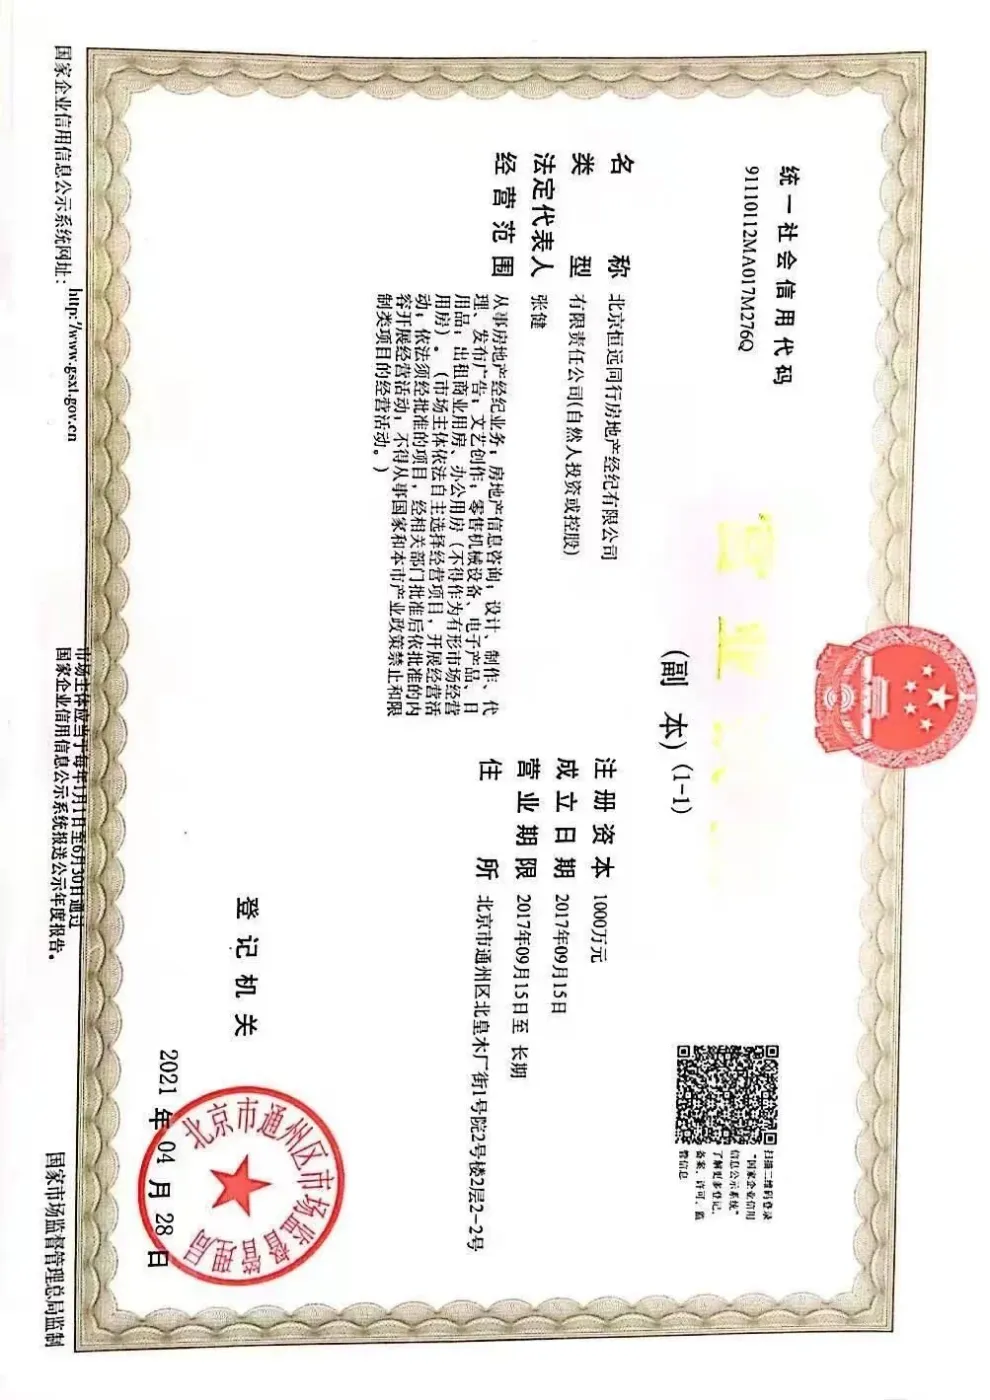 统一社会信用代码
91110112MA017M276Q
营业
(副 本) (1-1)
扫描二维码登录
“国家企业信用
信息公示系统”
了解更多登记、
备案、许可、监
管信息
名 称 北京恒远同行房地产经纪有限公司
类 型 有限责任公司(自然人投资或控股)
法定代表人 张健
经营范围 从事房地产经纪业务；房地产信息咨询；设计、制作、代
理、发布广告；文艺创作；零售机械设备、电子产品、日
用品；出租商业用房、办公用房（不得作为有形市场经营
用房）。（市场主体依法自主选择经营项目，开展经营活
动；依法须经批准的项目，经相关部门批准后依批准的内
容开展经营活动；不得从事国家和本市产业政策禁止和限
制类项目的经营活动。）
注册资本 1000万元
成立日期 2017年09月15日
营业期限 2017年09月15日至 长期
住 所 北京市通州区北皇木厂街1号院2号楼2层2-2号
登记机关
北京市通州区市场监督管理局
2021 年 04 月 28 日
国家企业信用信息公示系统网址：http://www.gsxt.gov.cn
市场主体应当于每年1月1日至6月30日通过
国家企业信用信息公示系统报送公示年度报告。
国家市场监督管理总局监制